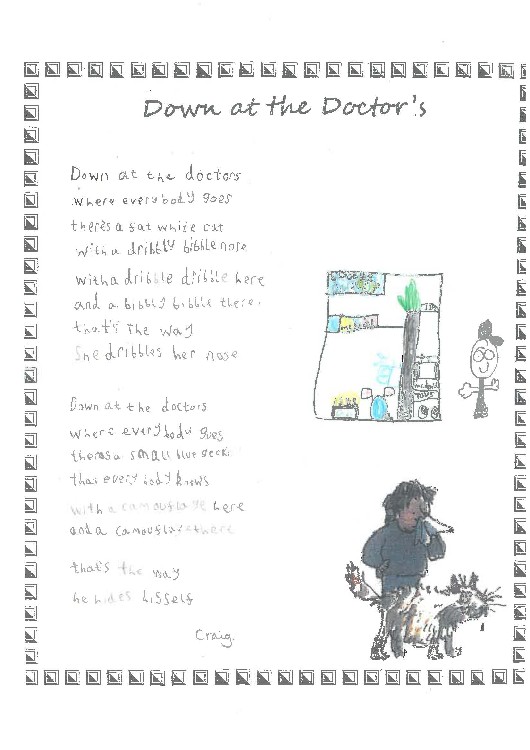 Down at the Doctor's
Down at the doctors
where everybody goes
there's a fat white cat
with a dribbly bibble nose
with a dribble dribble here
and a bibbly bibble there.
that's the way
She dribbles her nose
Down at the doctors
where everybody goes
theres a small blue gecko
that everybody knows
with a camouflage here
and a camouflage there
that's the way
he hides hisself
Craig.